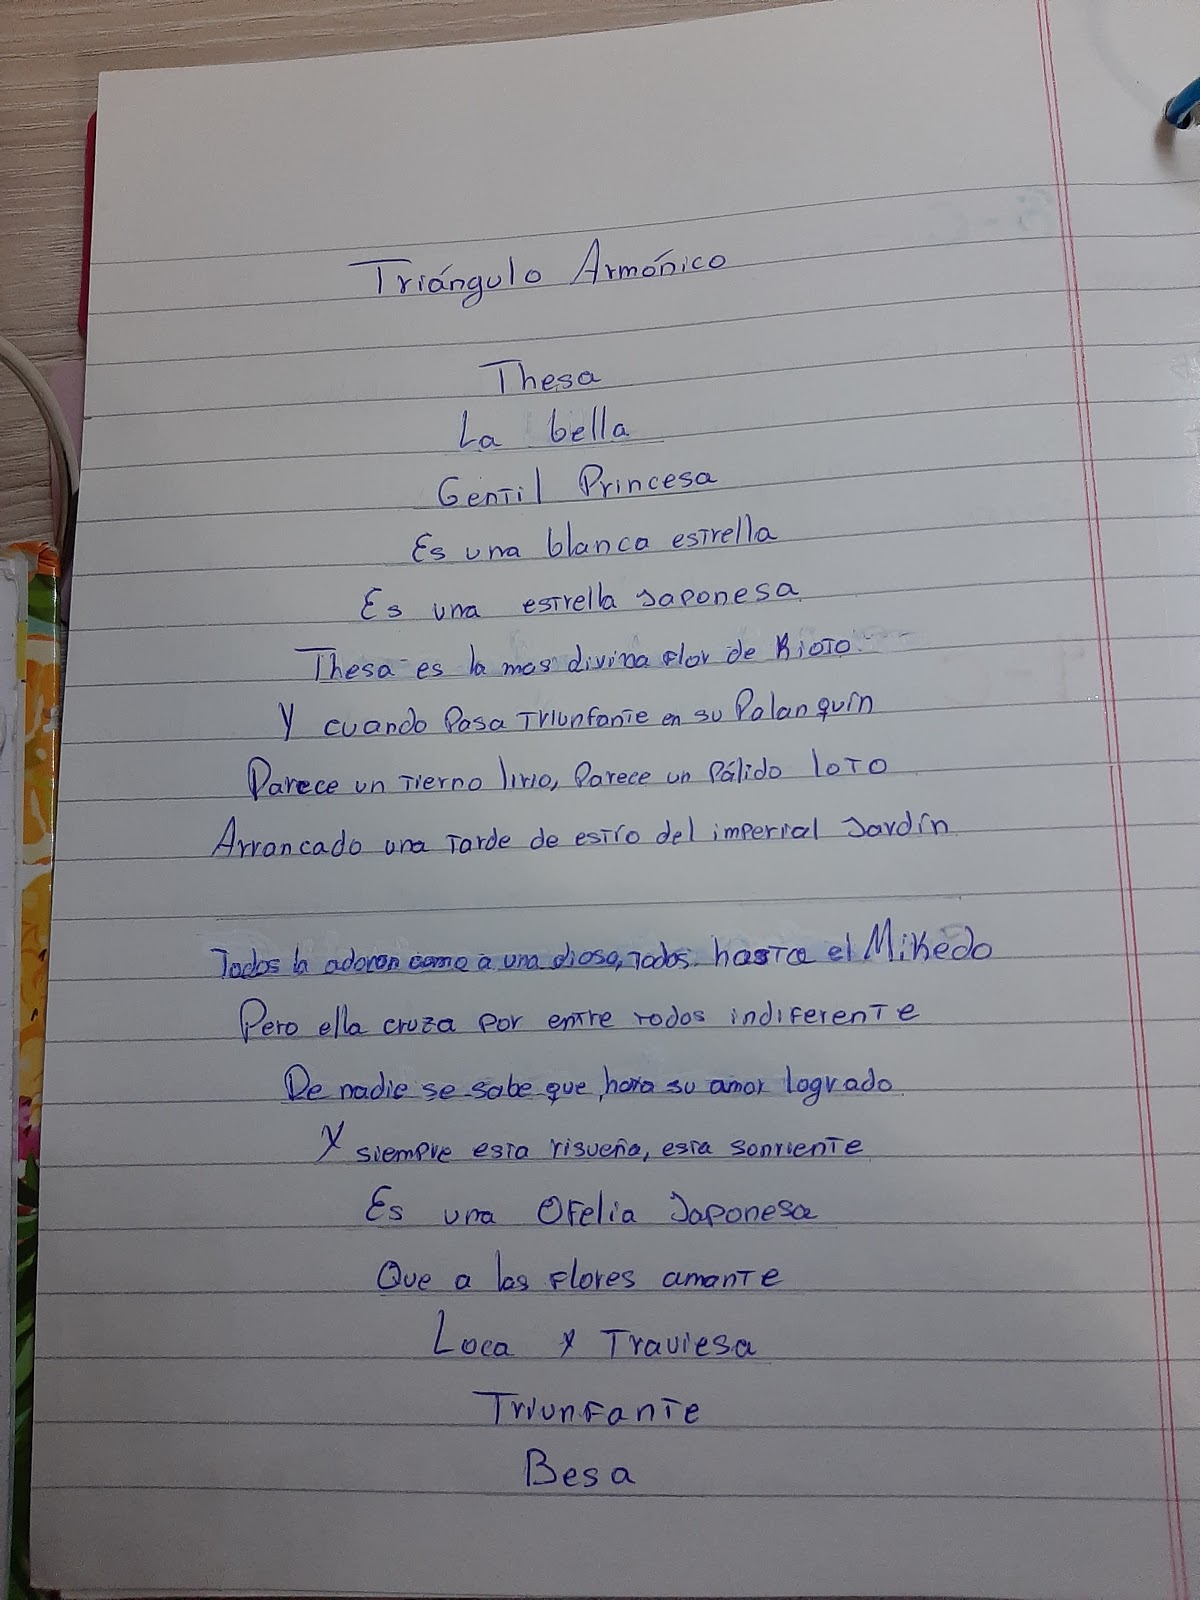 Triángulo Armónico
Thesa
La bella
Gentil Princesa
Es una blanca estrella
Es una estrella Japonesa
Thesa es la mas divina flor de Kioto
Y cuando Pasa Triunfante en su Palanquín
Parece un tierno lirio, Parece un Pálido loto
Arrancado una tarde de estío del imperial Jardín
Todos la adoran como a una diosa, todos hasta el Mikado
Pero ella cruza por entre todos indiferente
De nadie se sabe que haya su amor logrado
Y siempre esta risueña, esta sonriente
Es una Ofelia Japonesa
Que a las flores amante
Loca y Traviesa
Triunfante
Besa